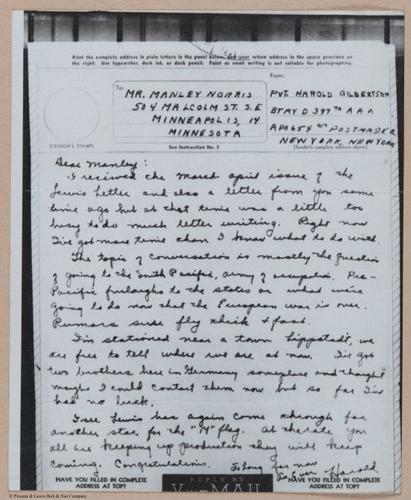 Print the complete address in plain letters in the panel below, and your return address in the space provided on
the right. Use typewriter, dark ink, or dark pencil. Faint or small writing is not suitable for photographing.
To:
From:
MR. MANLEY NORRIS
504 MALCOLM ST. S.E
MINNEAPOLIS, 14
MINNESOTA
PVT. HAROLD GILBERTSON
BTRY D 397TH A A A
APO 654 POSTMASTER
NEW YORK, NEW YORK
(CENSOR'S STAMP)
See Instruction No. 2
(Sender's complete address above)
Dear Manley:
I received the march april issue of the
Lewis Letter and also a letter from you some
time ago but at that time was a little too
busy to do much letter writing. Right now
I've got more time than I know what to do with.
The topic of conversation is mostly the question
of going to the South Pacific, army of occupation, Pre-
Pacific furloughs to the states or what we're
going to do now that the European war is over.
Rumors sure fly thick & fast.
I'm stationed near a town Lippstadt, we
are free to tell where we are at now. I've got
two brothers here in Germany someplace and thought
maybe I could contact them now but so far I've
had no luck.
I see Lewis has again come through for
another star, for the "M" flag. At the rate you
all are keeping up production they will keep
coming. Congratulations. So long for now
As Ever - Harold
HAVE YOU FILLED IN COMPLETE
ADDRESS AT TOP?
REPLY BY
V-MAIL
HAVE YOU FILLED IN COMPLETE
ADDRESS AT TOP?
© Pioneers & Lewis Bolt & Nut Company